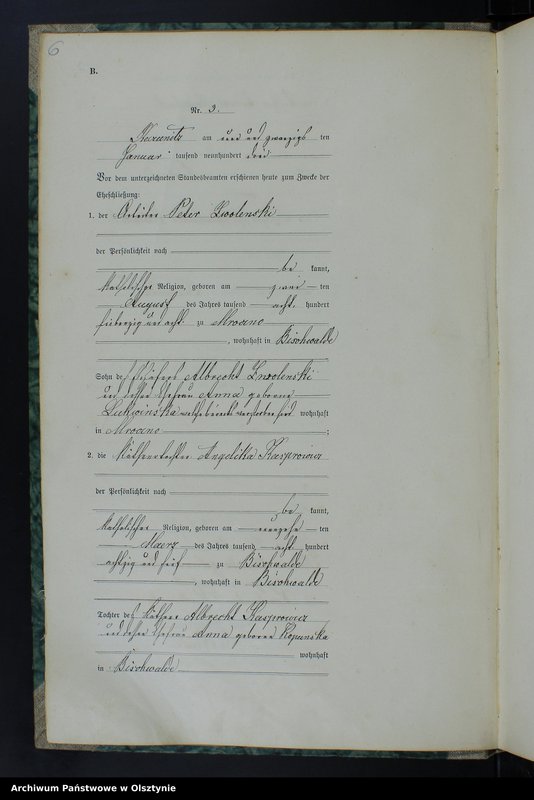 6
B.
Nr. 3.
am ein und zwanzigsten
Januar tausend neunhundert drei
Vor dem unterzeichneten Standesbeamten erschienen heute zum Zwecke der
Eheschließung:
1. der Arbeiter Peter Zwolenski
der Persönlichkeit nach
be kannt,
katholischer Religion, geboren am zwei ten
August des Jahres tausend acht hundert
siebenzig und acht zu Mroczno
, wohnhaft in Bischwalde
Sohn des Schäfers Albrecht Zwolenski
und dessen Ehefrau Anna geborene
welche bereits verstorben sind wohnhaft
in Mroczno ;
2. die Käthnertochter Angelika Kasprowicz
der Persönlichkeit nach
be kannt,
katholischer Religion, geboren am ten
Maerz des Jahres tausend acht hundert
achtzig und fünf zu Bischwalde
, wohnhaft in Bischwalde
Tochter des Käthners Albrecht Kasprowicz
und dessen Ehefrau Anna geborene Kopanska
wohnhaft
in Bischwalde
Archiwum Państwowe w Olsztynie